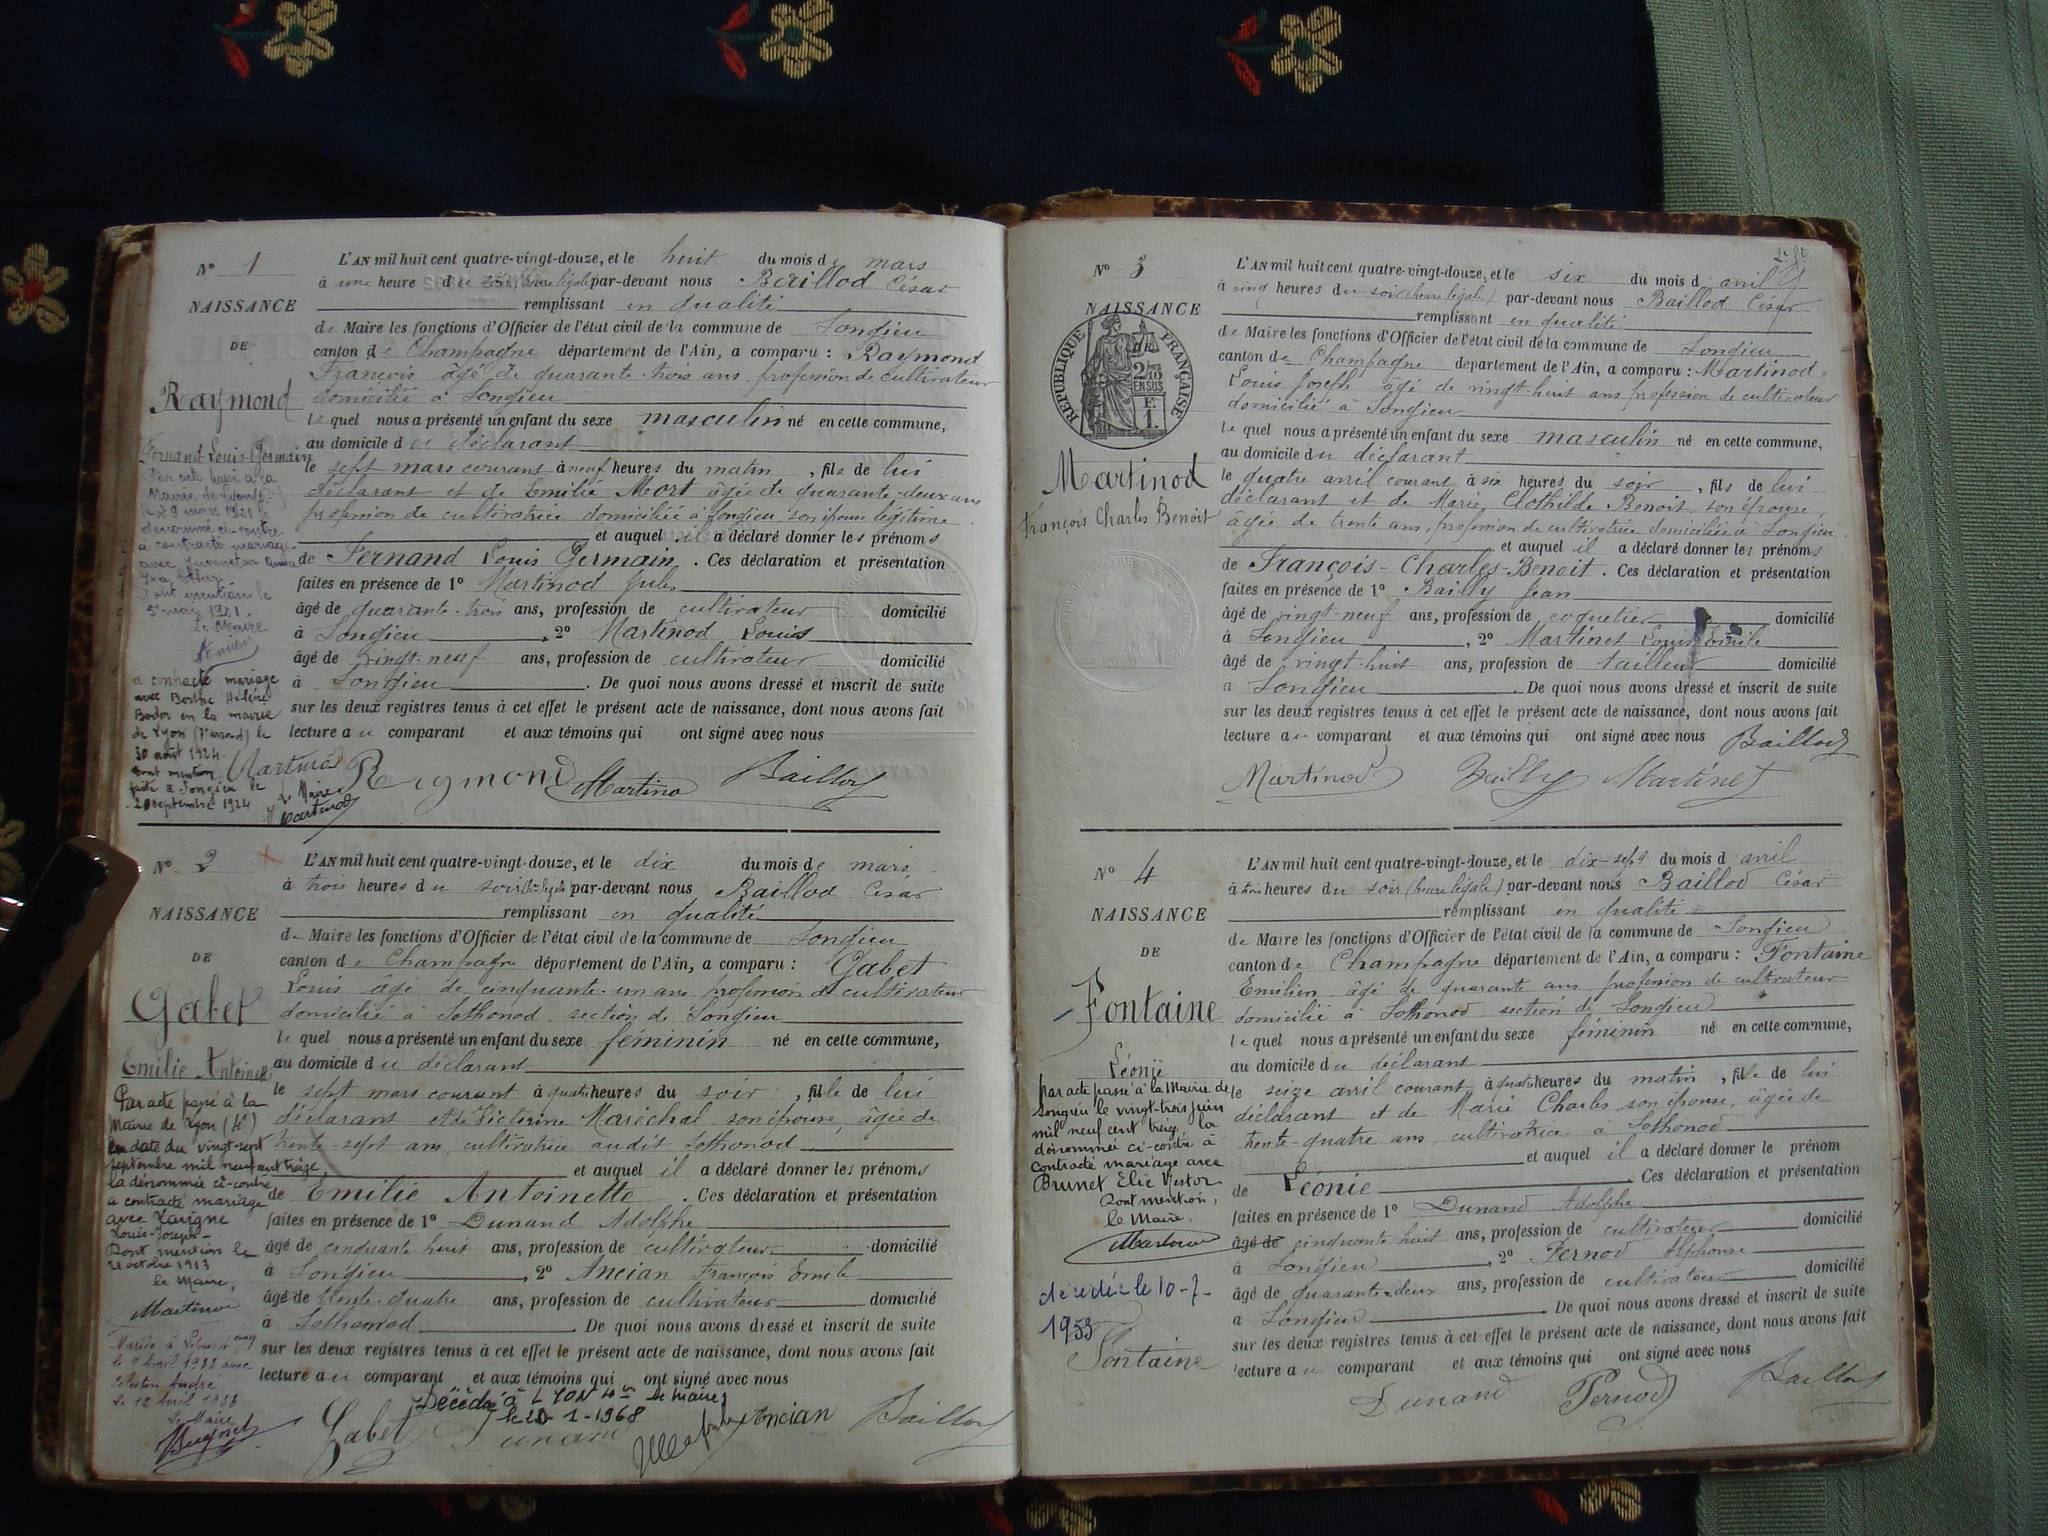 N° 1
NAISSANCE
DE
Raymond
Fernand Louis Germain
Par acte passé à la
Mairie de Lyon
le 9 mars 1921 le
dénommé ci-contre
a contracté mariage
avec
Dont mention le
5 mars 1921.
Le Maire
a contracté mariage
avec Berthe Hélène
Bodor en la mairie
de Lyon (7e arrond) le
30 août 1924
Dont mention
faite à Songieu le
20 septembre 1924
Le Maire
Martinod
L'AN mil huit cent quatre-vingt-douze, et le huit du mois de mars
à une heure du soir (heure légale) par-devant nous Baillod César
remplissant en qualité
de Maire les fonctions d'Officier de l'état civil de la commune de Songieu
canton de Champagne département de l'Ain, a comparu : Raymond
François âgé de quarante-trois ans, profession de cultivateur
domicilié à Songieu
lequel nous a présenté un enfant du sexe masculin né en cette commune,
au domicile du déclarant
le sept mars courant à neuf heures du matin, fils de lui
déclarant et de Emilie Mort âgée de quarante-deux ans
profession de cultivatrice domiciliée à Songieu, son épouse légitime
et auquel il a déclaré donner les prénoms
de Fernand Louis Germain. Ces déclaration et présentation
faites en présence de 1° Martinod Jules
âgé de quarante-trois ans, profession de cultivateur domicilié
à Songieu, 2° Martinod Louis
âgé de vingt-neuf ans, profession de cultivateur domicilié
à Songieu. De quoi nous avons dressé et inscrit de suite
sur les deux registres tenus à cet effet le présent acte de naissance, dont nous avons fait
lecture au comparant et aux témoins qui ont signé avec nous
Martinod Raymond Martino Baillod
N° 2
NAISSANCE
DE
Gabet
Emilie Antoinette
Par acte passé à la
Mairie de Lyon (4e)
en date du vingt-sept
septembre mil neuf cent treize
la dénommée ci-contre
a contracté mariage
avec Lavigne
Louis-Joseph
Dont mention le
21 octobre 1913
le Maire,
Martinod
Mariée à Lyon
le 9 Avril 1938 avec
Célestin André
le 12 Avril 1938
Le Maire
L'AN mil huit cent quatre-vingt-douze, et le dix du mois de mars
à trois heures du soir (heure légale) par-devant nous Baillod César
remplissant en qualité
de Maire les fonctions d'Officier de l'état civil de la commune de Songieu
canton de Champagne département de l'Ain, a comparu : Gabet
Louis âgé de cinquante-un ans profession de cultivateur
domicilié à Sothonod section de Songieu
lequel nous a présenté un enfant du sexe féminin né en cette commune,
au domicile du déclarant
le sept mars courant à quatre heures du soir, fille de lui
déclarant et de Victorine Maréchal son épouse, âgée de
trente-sept ans, cultivatrice audit Sothonod
et auquel il a déclaré donner les prénoms
de Emilie Antoinette. Ces déclaration et présentation
faites en présence de 1° Dunand Adolphe
âgé de cinquante huit ans, profession de cultivateur domicilié
à Songieu, 2° Ancian François Emile
âgé de trente-quatre ans, profession de cultivateur domicilié
à Sothonod. De quoi nous avons dressé et inscrit de suite
sur les deux registres tenus à cet effet le présent acte de naissance, dont nous avons fait
lecture au comparant et aux témoins qui ont signé avec nous
Décédée à LYON 4e le Maire,
le 20-1-1968
Gabet Dunand Ancian Baillod
N° 3
NAISSANCE
DE
RÉPUBLIQUE FRANÇAISE
2/10
EN SUS
E.
1.
Martinod
François Charles Benoit
L'AN mil huit cent quatre-vingt-douze, et le six du mois d avril
à cinq heures du soir (heure légale) par-devant nous Baillod César
remplissant en qualité
de Maire les fonctions d'Officier de l'état civil de la commune de Songieu
canton de Champagne département de l'Ain, a comparu : Martinod
Louis Joseph âgé de vingt-huit ans profession de cultivateur
domicilié à Songieu
lequel nous a présenté un enfant du sexe masculin né en cette commune,
au domicile du déclarant
le quatre avril courant à six heures du soir, fils de lui
déclarant et de Marie Clothilde Benoit, son épouse,
âgée de trente ans, profession de cultivatrice domiciliée à Songieu
et auquel il a déclaré donner les prénoms
de François-Charles-Benoit. Ces déclaration et présentation
faites en présence de 1° Bailly Jean
âgé de vingt-neuf ans, profession de coquetier domicilié
à Songieu, 2° Martinet Louis Emile
âgé de vingt-huit ans, profession de tailleur domicilié
à Songieu. De quoi nous avons dressé et inscrit de suite
sur les deux registres tenus à cet effet le présent acte de naissance, dont nous avons fait
lecture au comparant et aux témoins qui ont signé avec nous Baillod
Martinod Bailly Martinet
N° 4
NAISSANCE
DE
Fontaine
Léonie
par acte passé à la Mairie de
Songieu le vingt-trois juin
mil neuf cent treize, la
dénommée ci-contre a
contracté mariage avec
Brunet Elie Victor
Dont mention,
le Maire,
Martinod
décédée le 10-7-
1953
Fontaine
L'AN mil huit cent quatre-vingt-douze, et le dix-sept du mois d avril
à trois heures du soir (heure légale) par-devant nous Baillod César
remplissant en qualité
de Maire les fonctions d'Officier de l'état civil de la commune de Songieu
canton de Champagne département de l'Ain, a comparu : Fontaine
Emilien âgé de quarante ans profession de cultivateur
domicilié à Sothonod section de Songieu
lequel nous a présenté un enfant du sexe féminin né en cette commune,
au domicile du déclarant
le seize avril courant à quatre heures du matin, fille de lui
déclarant et de Marie Charles son épouse, âgée de
trente-quatre ans, cultivatrice à Sothonod
et auquel il a déclaré donner le prénom
de Léonie. Ces déclaration et présentation
faites en présence de 1° Dunand Adolphe
âgé de cinquante huit ans, profession de cultivateur domicilié
à Songieu, 2° Pernod Alphonse
âgé de quarante-deux ans, profession de cultivateur domicilié
à Songieu. De quoi nous avons dressé et inscrit de suite
sur les deux registres tenus à cet effet le présent acte de naissance, dont nous avons fait
lecture au comparant et aux témoins qui ont signé avec nous
Dunand Pernod Baillod